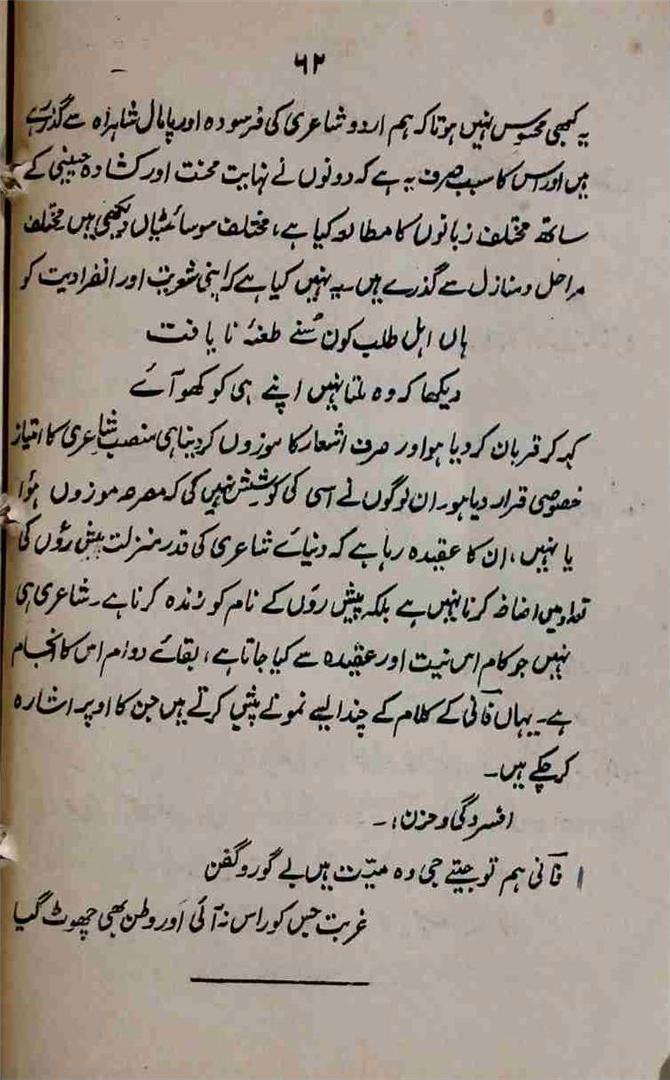 ۶۲
یہ کبھی محسوس نہیں ہوتا کہ ہم اردو شاعری کی فرسودہ اور پامال شاہراہ سے گذر رہے
ہیں اور اس کا سبب صرف یہ ہے کہ دونوں نے نہایت محنت اور کشادہ جبینی کے
ساتھ مختلف زبانوں کا مطالعہ کیا ہے، مختلف سوسائٹیاں دیکھی ہیں مختلف
مراحل و منازل سے گذرے ہیں۔ یہ نہیں کیا ہے کہ اپنی شعریت اور انفرادیت کو
ہاں اہل طلب کون سُنے طعنۂ نایافت
دیکھا کہ وہ ملتا نہیں اپنے ہی کو کھو آئے
کہہ کر قربان کر دیا ہو اور صرف اشعار کا موزوں کر دینا ہی منصب شاعری کا امتیاز
خصوصی قرار دیا ہو۔ ان لوگوں نے اسی کی کوشش نہیں کی کہ مصرعہ موزوں ہوُا
یا نہیں، ان کا عقیدہ رہا ہے کہ دنیائے شاعری کی قدر منزلت پیش روُں کی
تعداد میں اضافہ کرنا نہیں ہے بلکہ پیش روَں کے نام کو زندہ کرنا ہے۔ شاعری ہی
نہیں جو کام اس نیت اور عقیدہ سے کیا جاتا ہے، بقائے دوام اس کا انجام
ہے۔ یہاں فانی کے کلام کے چند ایسے نمونے پیش کرتے ہیں جن کا اوپر اشارہ
کر چکے ہیں۔
افسردگی و حزن:۔
۱ فانی ہم تو جیتے جی وہ میّت ہیں بے گور و کفن
غربت جس کو راس نہ آئی اور وطن بھی چھوٹ گیا